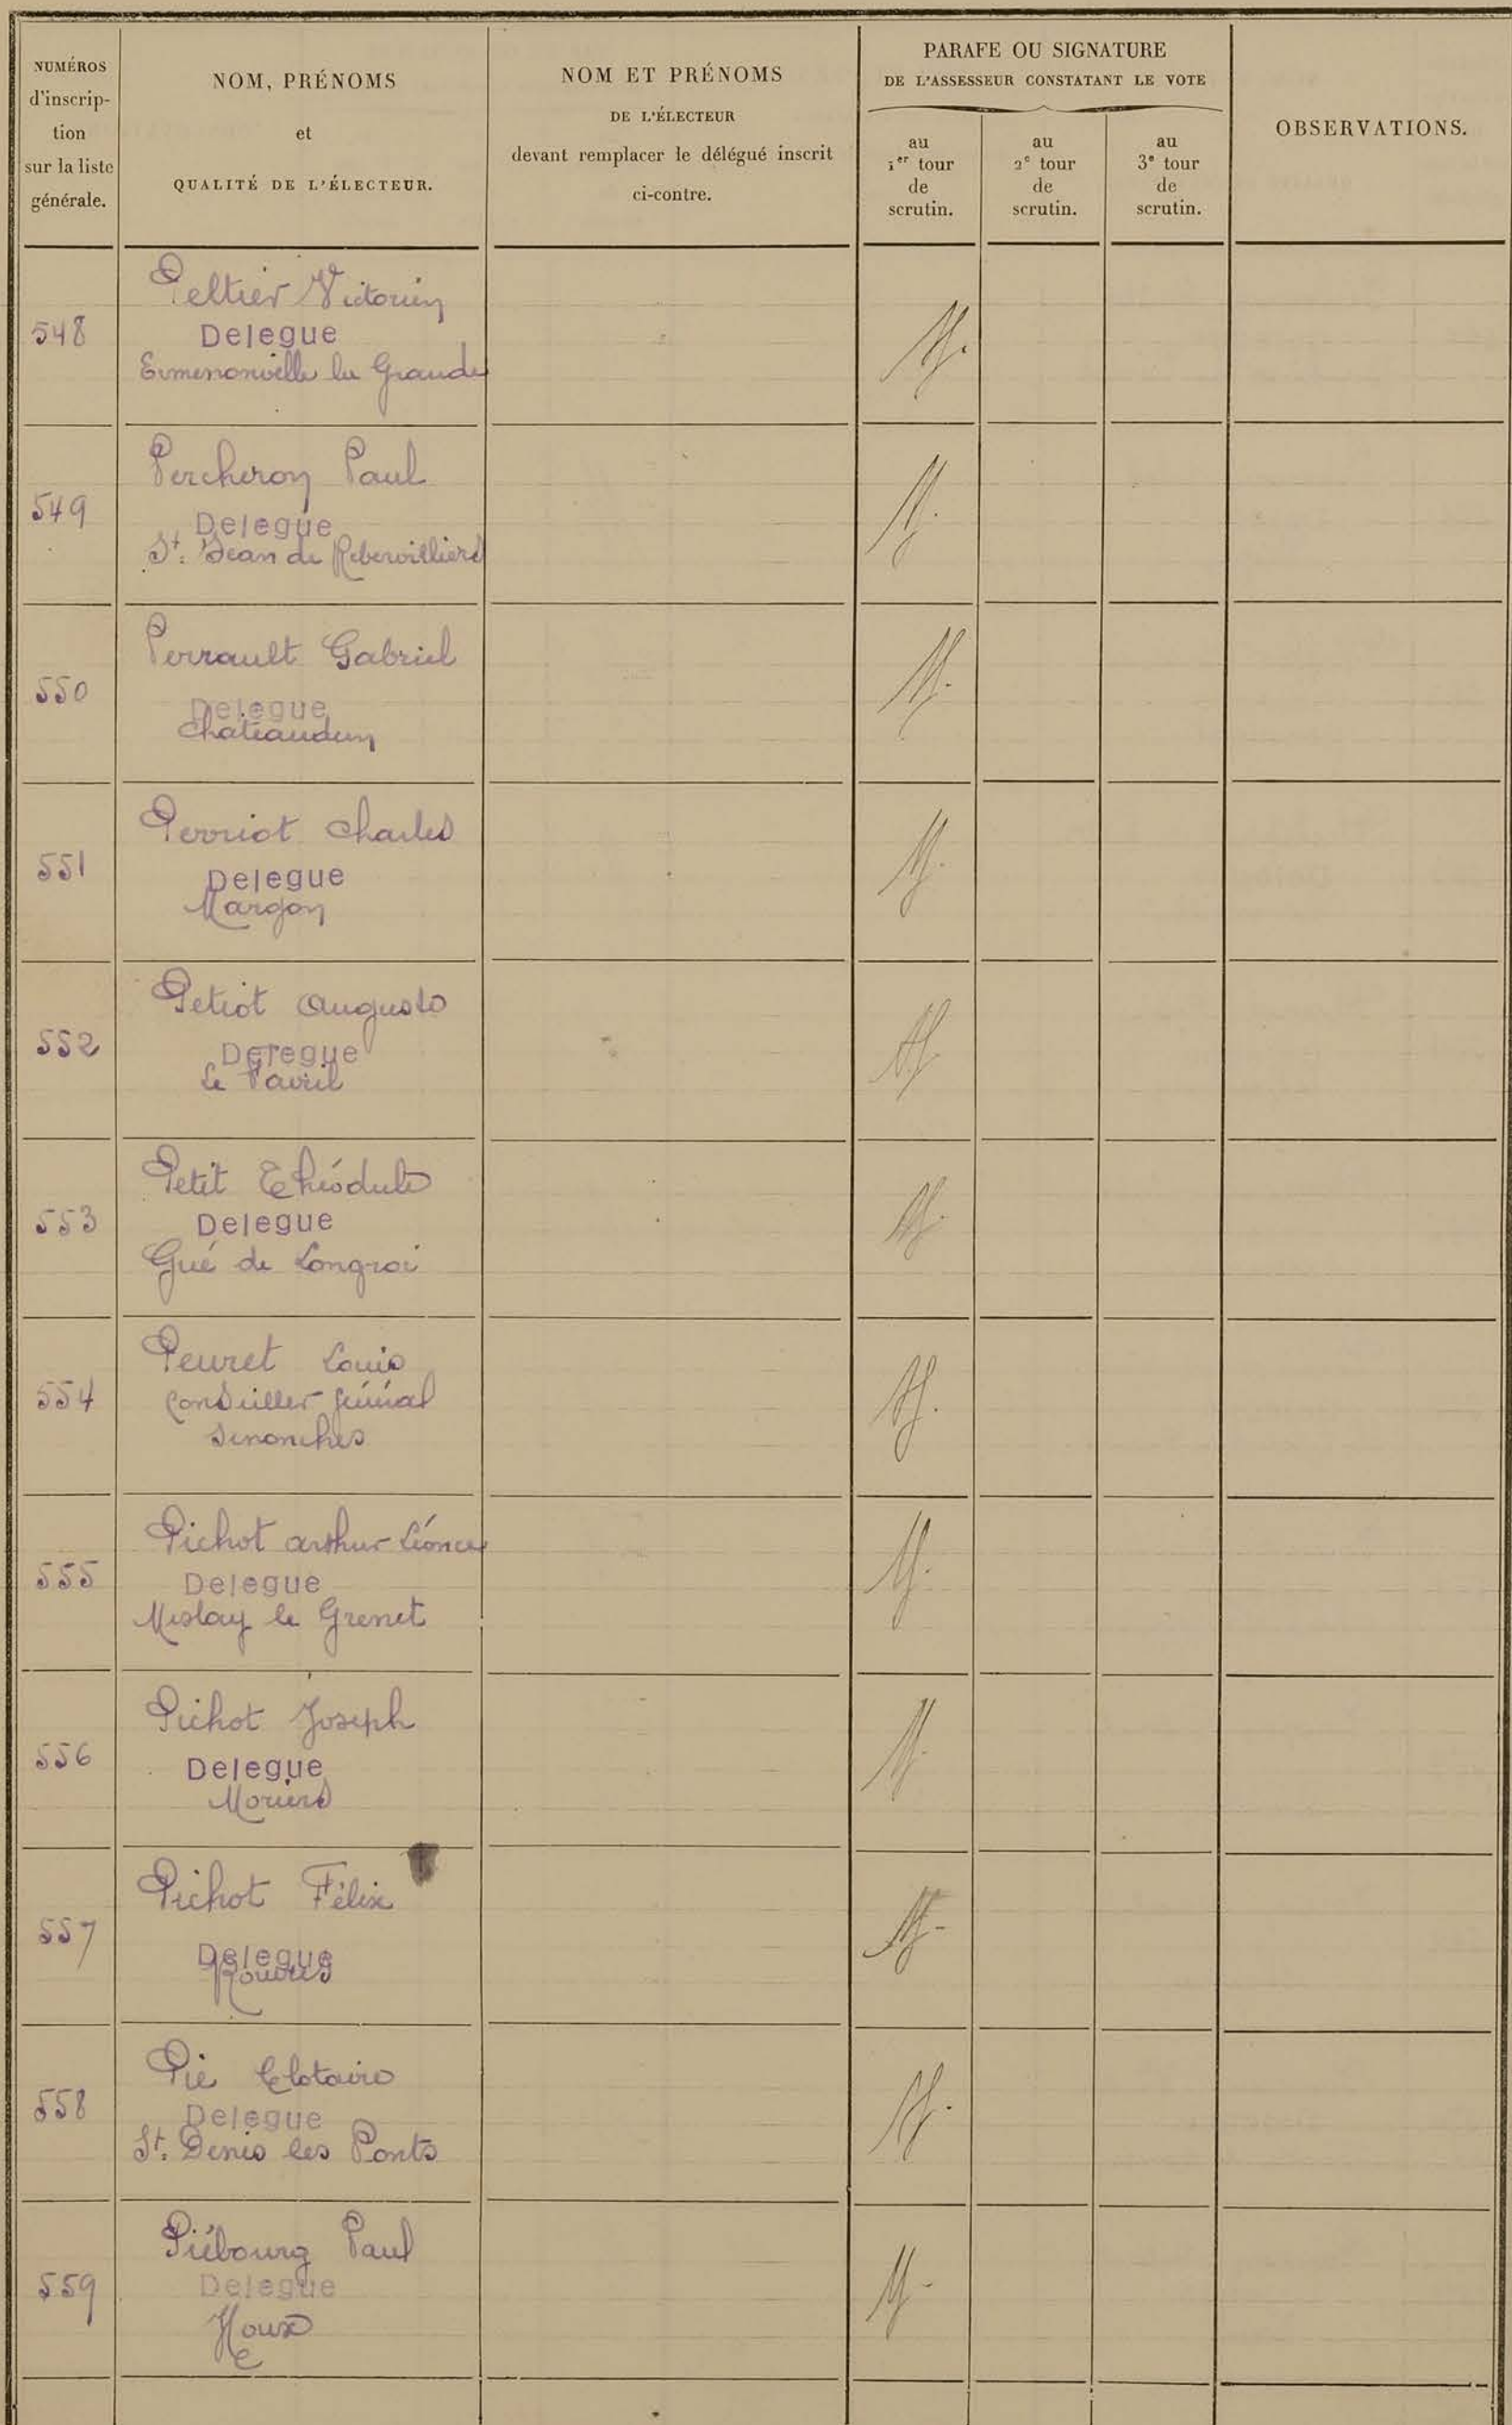 NUMÉROS
d'inscrip-
tion
sur la liste
générale.
NOM, PRÉNOMS
et
QUALITÉ DE L'ÉLECTEUR.
NOM ET PRÉNOMS
DE L'ÉLECTEUR
devant remplacer le délégué inscrit
ci-contre.
PARAFE OU SIGNATURE
DE L'ASSESSEUR CONSTATANT LE VOTE
au
1er tour
de
scrutin.
au
2e tour
de
scrutin.
au
3e tour
de
scrutin.
OBSERVATIONS.
548
Peltier Victorin
Delegue
Ermenonville la Grande
549
Percheron Paul
Delegue
St. Jean de Rebervilliers
550
Perrault Gabriel
Delegue
Chateaudun
551
Perriot Charles
Delegue
Margon
552
Petiot Auguste
Delegue
Le Favril
553
Petit Théodule
Delegue
Gué de Longroi
554
Peuret Louis
Conseiller général
Senonches
555
Pichot Arthur Léonce
Delegue
Meslay le Grenet
556
Pichot Joseph
Delegue
Moriers
557
Pichot Félix
Delegue
Rouvres
558
Pie Clotaire
Delegue
St. Denis les Ponts
559
Piébourg Paul
Delegue
Houx